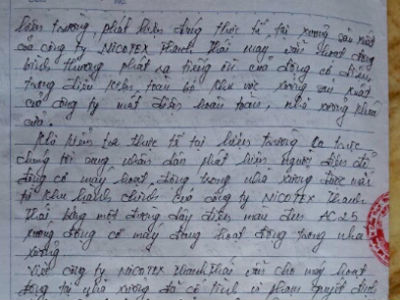 hiện trường, phát hiện đúng thực tế, tại xưởng sản xuất
của công ty NICOTEX Thanh Thái máy vẫn hoạt động
bình thường phát ra tiếng ồn của động cơ điện,
trong điều kiện, toàn bộ khu vực xưởng sản xuất
của công ty mất điện hoàn toàn, nhà xưởng khóa
cửa.
Khi kiểm tra thực tế tại hiện trường
chúng tôi cùng nhân dân phát hiện nguồn điện để
động cơ máy hoạt động trong nhà xưởng được
từ khu hành chính của công ty NICOTEX Thanh
Thái, bằng một đường dây điện màu đen AC25
xưởng động cơ máy đang hoạt động trong nhà
xưởng
Việc công ty NICOTEX Thanh Thái vẫn cho máy hoạt
động tại nhà xưởng đã cố tình vi phạm quyết định